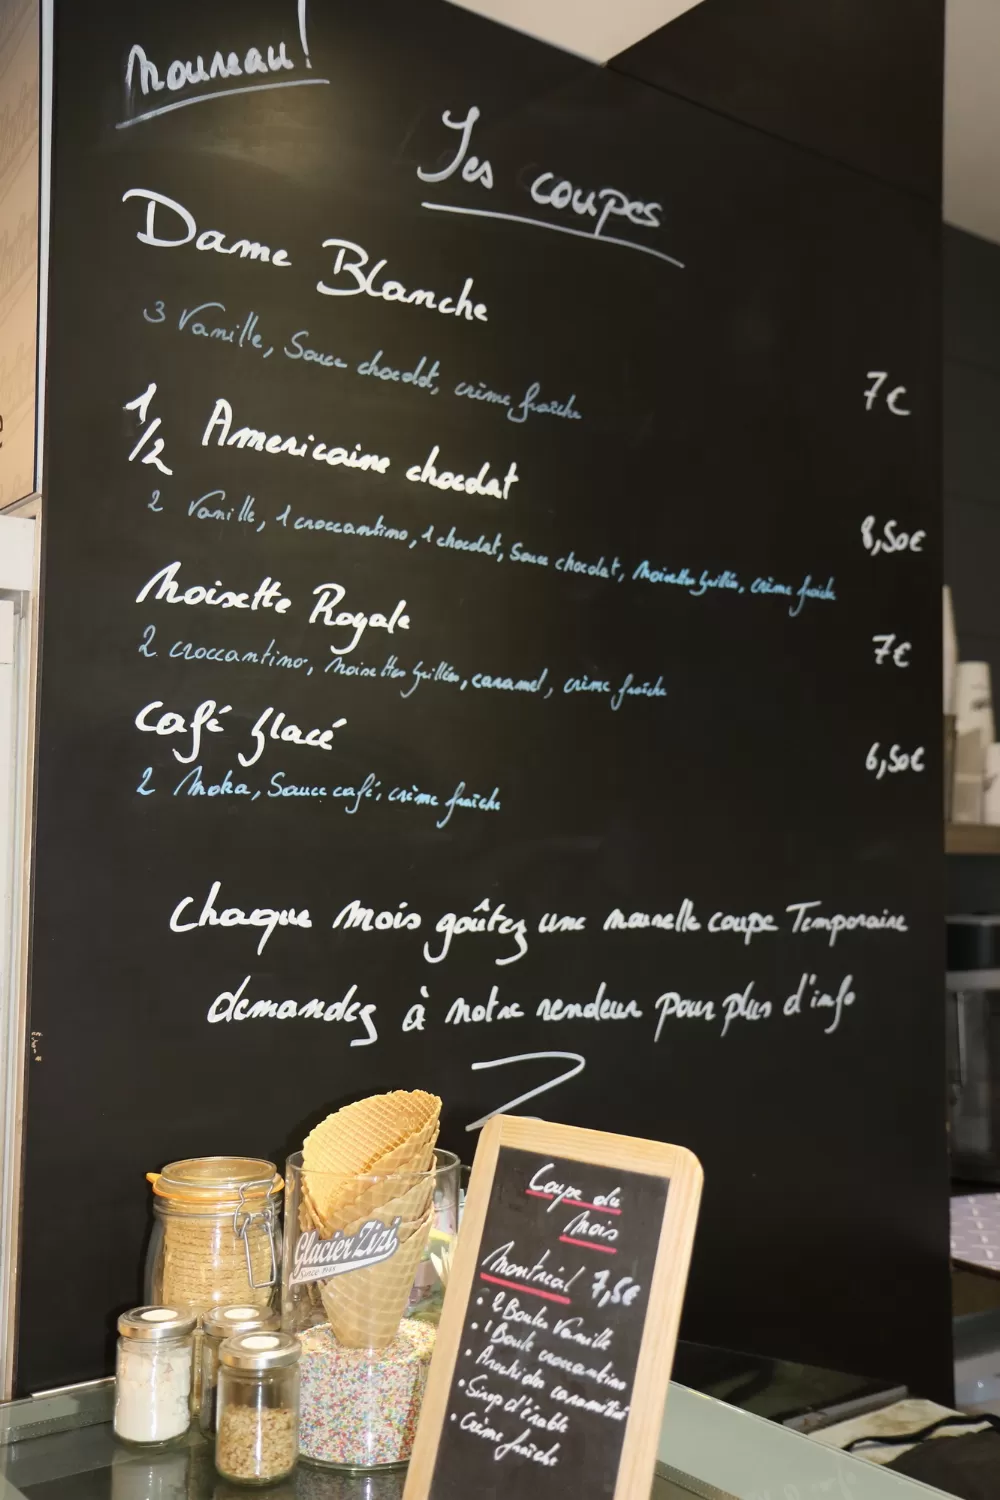 Nouveau!
Les coupes
Dame Blanche
3 Vanille, Sauce chocolat, crème fraîche
7€
1/2 Americaine chocolat
8,50€
2 Vanille, 1 croccantino, 1 chocolat, Sauce chocolat, Noisettes grillées, crème fraîche
Noisette Royale
7€
2 croccantino, noisettes grillées, caramel, crème fraîche
Café glacé
6,50€
2 Moka, Sauce café, crème fraîche
Chaque mois goûtez une nouvelle coupe Temporaire
demandez à notre vendeur pour plus d'info
Glacier Zizi
Coupe du
Mois
Montréal 7,5€
• 2 Boules Vanille
• 1 Boule croccantino
• Arachides caramélisé
• Sirop d'érable
• Crème fraîche